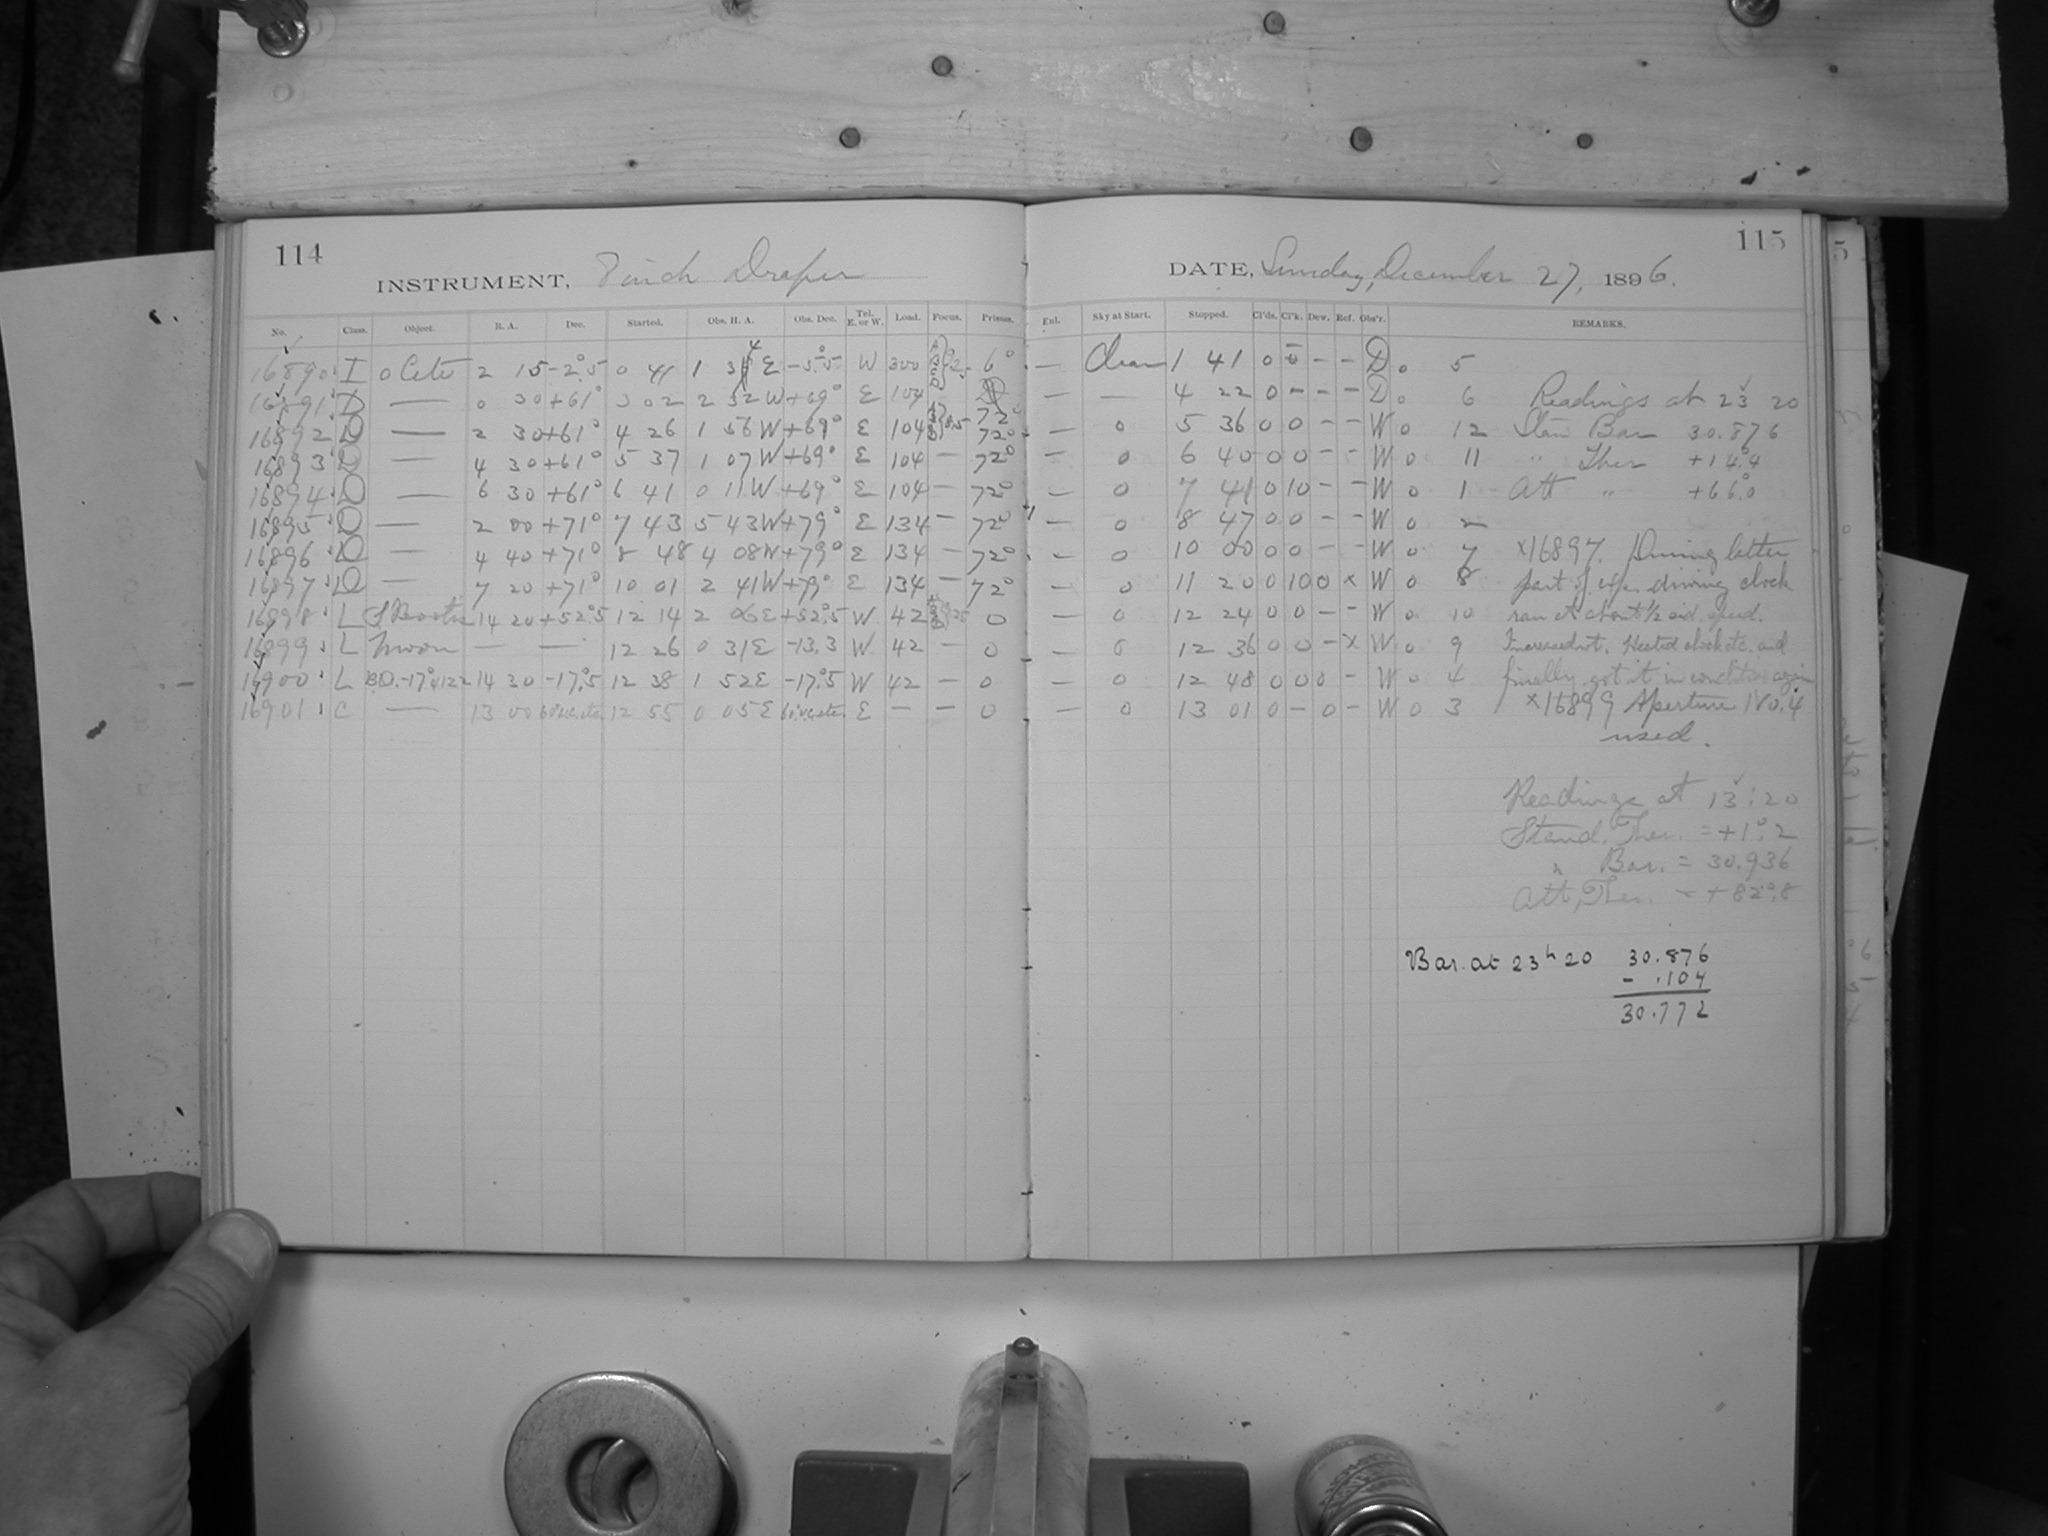 114
INSTRUMENT, 8 inch Draper
DATE, Sunday, December 27, 1896.
115
No. Class. Object. R. A. Dec. Started. Obs. H. A. Obs. Dec. Tel. E. or W. Load. Focus. Prisms. Enl. Sky at Start. Stopped. Cl'ds. Cl'k. Dew. Ref. Obs'r. REMARKS.
16890 I o Ceti 2 15 -2°.5 0 41 1 34 E -5°.5 W 300 6° — Clear 1 41 0 0 - - D o 5
16891 D — 0 30 +61° 3 02 2 32 W +69° E 104 72° — — 4 22 0 - - - D o 6 Readings at 23 20
16892 D — 2 30 +61° 4 26 1 56 W +69° E 104 72° — 0 5 36 0 0 - - W o 12 Stan Bar 30.876
16893 D — 4 30 +61° 5 37 1 07 W +69° E 104 — 72° — 0 6 40 0 0 - - W o 11 " Ther +14°.4
16894 D — 6 30 +61° 6 41 0 11 W +69° E 104 — 72° — 0 7 41 0 10 - - W o 1 Att " +66°.0
16895 D — 2 00 +71° 7 43 5 43 W +79° E 134 — 72° — 0 8 47 0 0 - - W o 2
16896 D — 4 40 +71° 8 48 4 08 W +79° E 134 — 72° — 0 10 00 0 0 - - W o 7 x16897. During latter
16897 D — 7 20 +71° 10 01 2 41 W +79° E 134 — 72° — 0 11 20 0 10 0 x W o 8 part of exp. driving clock
16898 L S Bootis 14 20 +52°.5 12 14 2 06 E +52°.5 W 42 0 — 0 12 24 0 0 - - W o 10 ran at about 1/2 sid. speed.
16899 L Moon — — 12 26 0 31 E -13.3 W 42 — 0 — 0 12 36 0 0 - x W o 9 Increased wt. Heated clock etc. and
16900 L B.D. -17°4122 14 30 -17°.5 12 38 1 52 E -17°.5 W 42 — 0 — 0 12 48 0 0 0 - W o 4 finally got it in condition again
16901 C — 13 00 60° etc. 12 55 0 05 E 60° etc. E — — 0 — 0 13 01 0 - 0 - W o 3 x16899 Aperture No. 4
used.
Readings at 13:20
Stand. Ther. = +1°.2
" Bar. = 30.936
Att. Ther. = +82°.8
Bar. at 23h 20 30.876
- .104
30.772